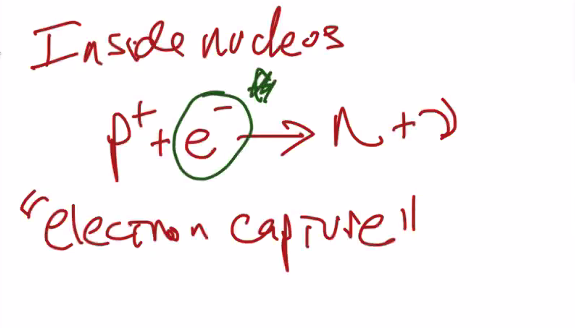 Inside nucleos
p⁺ + e⁻ → n + ν
"electron capture"